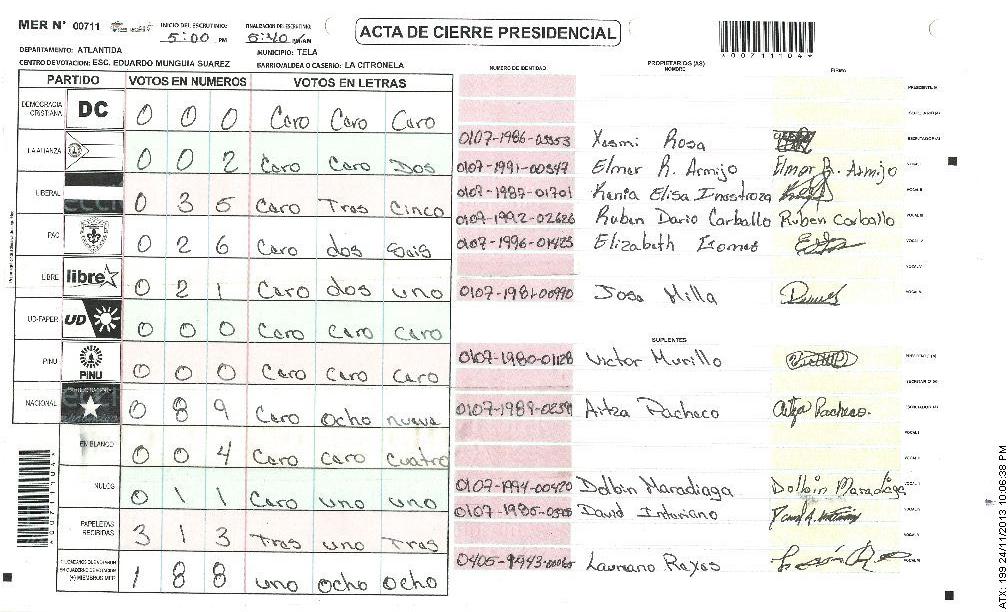 MER N° 00711
INICIO DEL ESCRUTINIO: 5:00 PM
FINALIZACION DEL ESCRUTINIO: 5:40 PM/AM
ACTA DE CIERRE PRESIDENCIAL
*00711104*
DEPARTAMENTO: ATLANTIDA
MUNICIPIO: TELA
CENTRO DE VOTACION: ESC. EDUARDO MUNGUIA SUAREZ
BARRIO/ALDEA O CASERIO: LA CITRONELA
PARTIDO VOTOS EN NUMEROS VOTOS EN LETRAS
DEMOCRACIA CRISTIANA DC 0 0 0 Cero Cero Cero
LA ALIANZA 0 0 2 Cero Cero Dos
LIBERAL 0 3 5 Cero Tres Cinco
PAC 0 2 6 Cero dos Seis
LIBRE libre 0 2 1 Cero dos uno
UD-FAPER UD 0 0 0 Cero Cero Cero
PINU PINU 0 0 0 Cero Cero Cero
NACIONAL 0 8 9 Cero ocho nueve
EN BLANCO 0 0 4 Cero cero cuatro
NULOS 0 1 1 Cero uno uno
PAPELETAS RECIBIDAS 3 1 3 Tres uno Tres
(+) MIEMBROS MER 1 8 8 uno ocho ocho
NUMERO DE IDENTIDAD
PROPIETARIOS (AS)
NOMBRE
FIRMA
Yesmi Rosa
0107-1991-00347 Elmer R. Armijo Elmer R. Armijo
0107-1987-01701 Kenia Elisa Inestroza
0107-1992-02626 Ruben Dario Carballo Rúben Carballo
0107-1996-01425 Elizabeth
0107-1981-00990 Jose Milla
SUPLENTES
0107-1980-01128 Victor Murillo
Aitza Pacheco Aitza Pacheco.
0107-1994-00420 Dolbin Maradiaga Dolbin Maradiaga
David Interiano
Laureano Reyes
*00711104*
ATX: 199 24/11/2013 10:06:38 PM